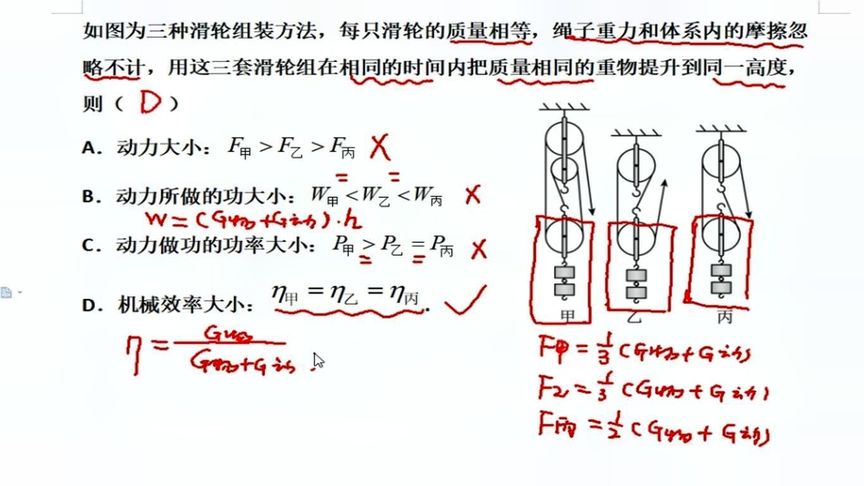 如图为三种滑轮组装方法，每只滑轮的质量相等，绳子重力和体系内的摩擦忽
略不计，用这三套滑轮组在相同的时间内把质量相同的重物提升到同一高度，
则（ D ）
A．动力大小：F甲 > F乙 > F丙 ×
= =
B．动力所做的功大小：W甲 < W乙 < W丙 ×
W = (G物 + G动)·h
C．动力做功的功率大小：P甲 > P乙 = P丙 ×
= =
D．机械效率大小：η甲 = η乙 = η丙． ✓
甲 乙 丙
η = G物 / (G物 + G动)
F甲 = 1/3 (G物 + G动)
F乙 = 1/3 (G物 + G动)
F丙 = 1/2 (G物 + G动)